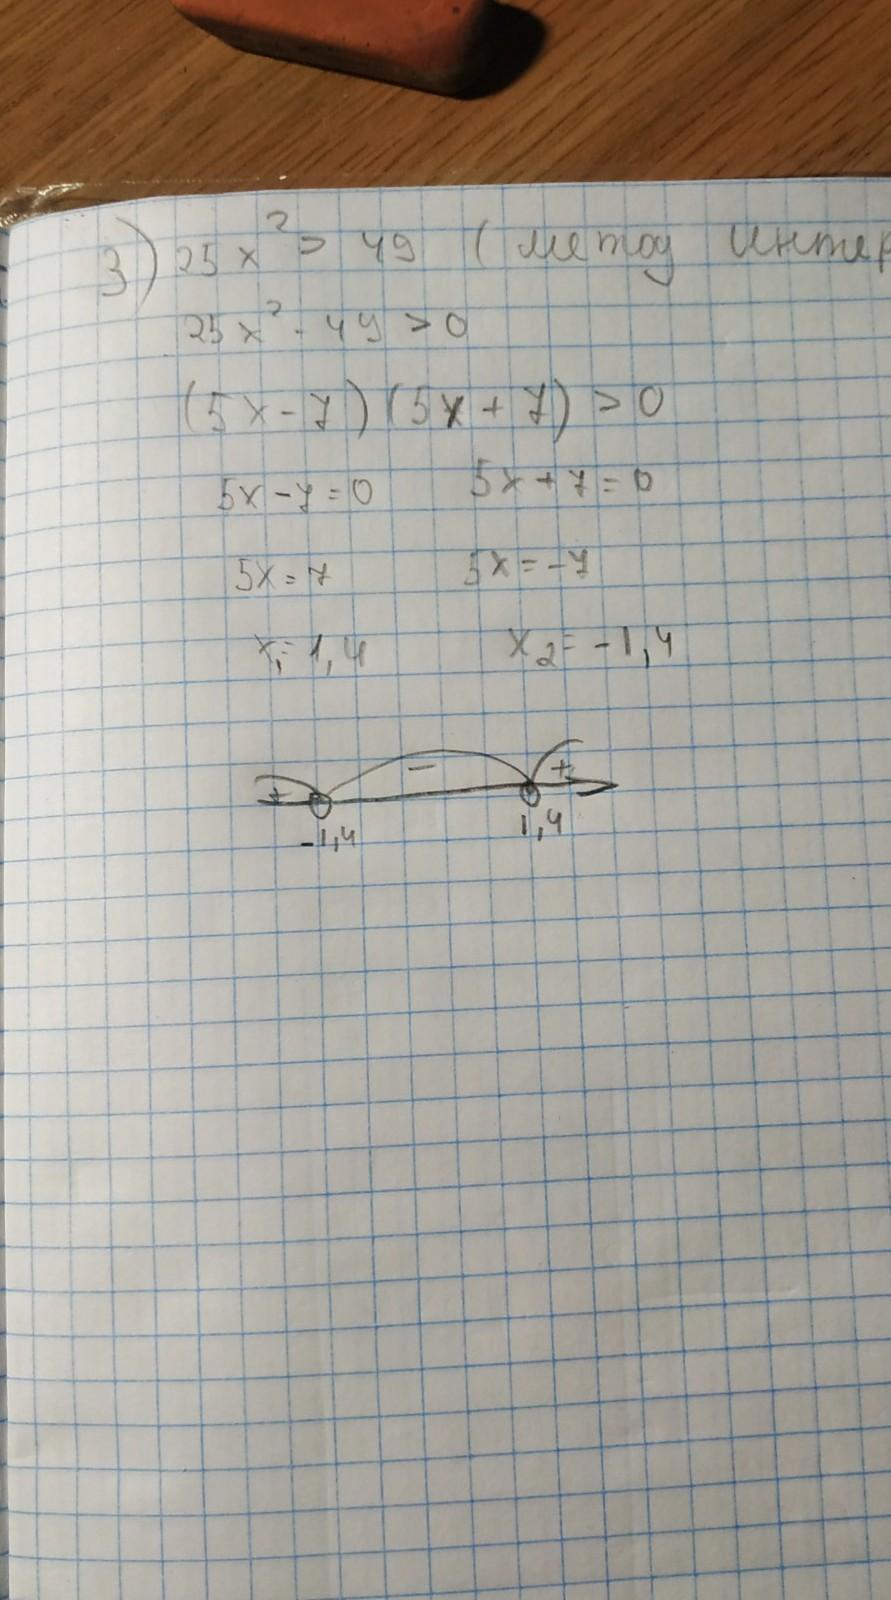 3) 25x² > 49 (метод интер
25x² - 49 > 0
(5x - 7)(5x + 7) > 0
5x - 7 = 0 5x + 7 = 0
5x = 7 5x = -7
x₁ = 1,4 x₂ = -1,4
+ - +
-1,4 1,4